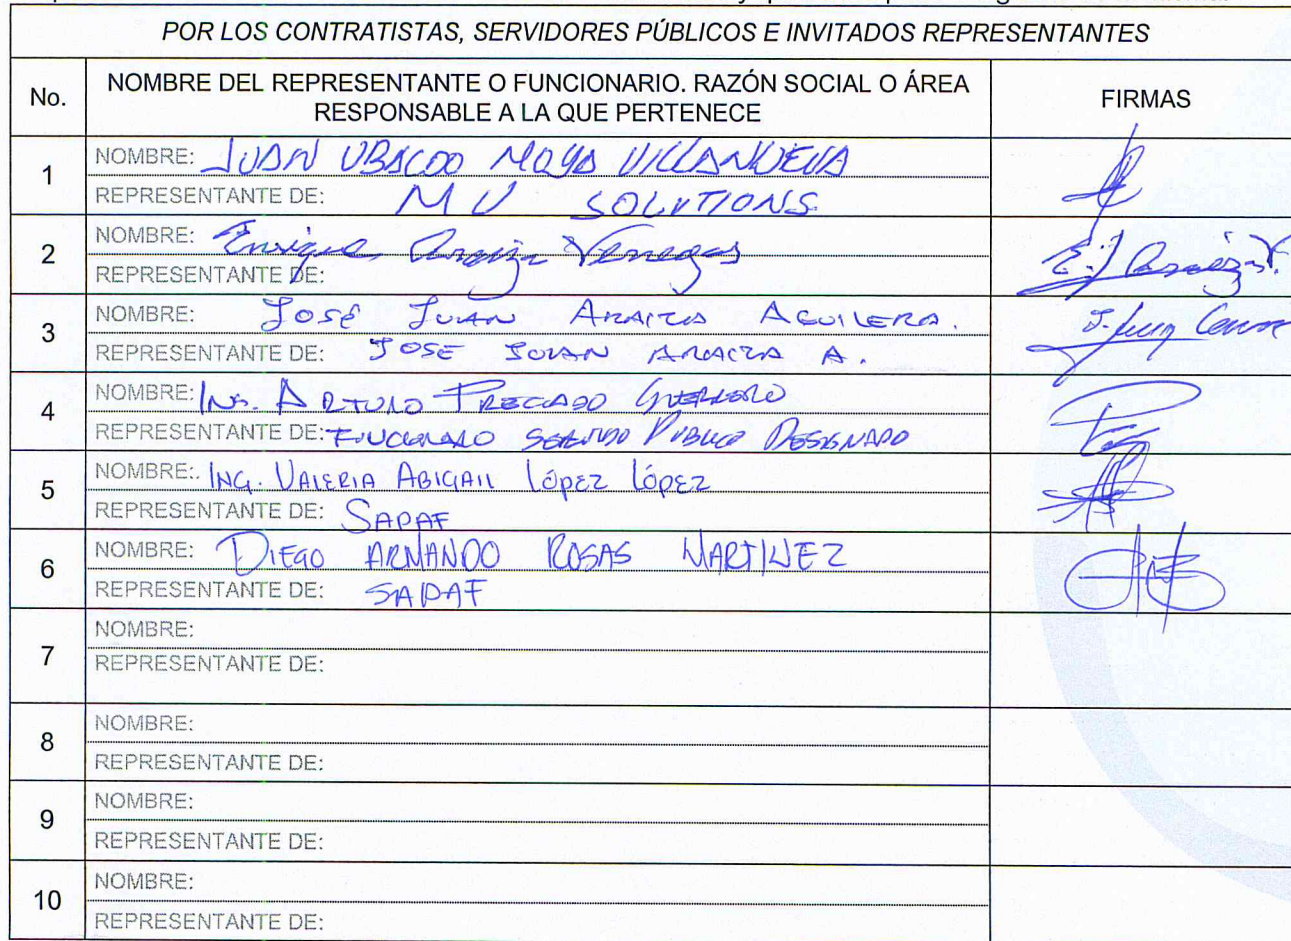 POR LOS CONTRATISTAS, SERVIDORES PÚBLICOS E INVITADOS REPRESENTANTES
No. NOMBRE DEL REPRESENTANTE O FUNCIONARIO. RAZÓN SOCIAL O ÁREA RESPONSABLE A LA QUE PERTENECE FIRMAS
1 NOMBRE: JUAN UBALDO MOYA VILLANUEVA
REPRESENTANTE DE: MV SOLUTIONS
2 NOMBRE: Enrique Araiza Venegas
REPRESENTANTE DE:
3 NOMBRE: José Juan Araiza Aguilera.
REPRESENTANTE DE: José Juan Araiza A.
4 NOMBRE: Ing. Arturo Preciado Guerrero
REPRESENTANTE DE: Funcionario Servidor Publico Designado
5 NOMBRE:. ING. VALERIA ABIGAIL López López
REPRESENTANTE DE: SAPAF
6 NOMBRE: DIEGO ARMANDO ROSAS MARTINEZ
REPRESENTANTE DE: SAPAF
7 NOMBRE:
REPRESENTANTE DE:
8 NOMBRE:
REPRESENTANTE DE:
9 NOMBRE:
REPRESENTANTE DE:
10 NOMBRE:
REPRESENTANTE DE: